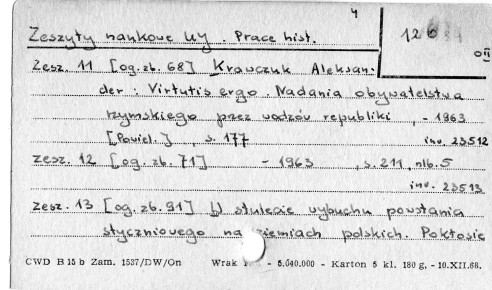 4
Zeszyty naukowe UJ. Prace hist.
126
OII
Zesz. 11 [og. zb. 68] Krawczuk Aleksan-
der: Virtutis ergo. Nadania obywatelstwa
rzymskiego przez wodzów republiki, - 1963
[Powiel.], s. 177 inw. 23512
Zesz. 12 [og. zb. 71] - 1963, s. 211, nlb. 5
inw. 23513
Zesz. 13 [og. zb. 91] W stulecie wybuchu powstania
styczniowego na ziemiach polskich. Pokłosie
CWD B 15 b Zam. 1537/DW/On Wrak - 5.040.000 - Karton 5 kl. 180 g. - 10.XII.68.